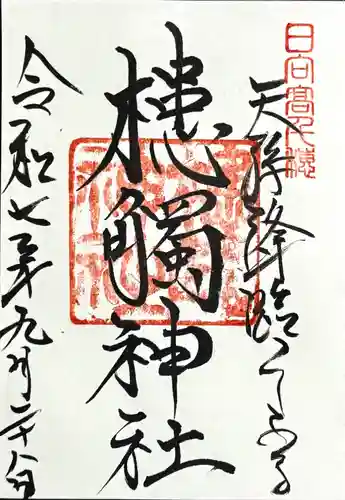 日向高千穂
天孫降臨くしふる
槵觸神社
令和七年九月二十八日